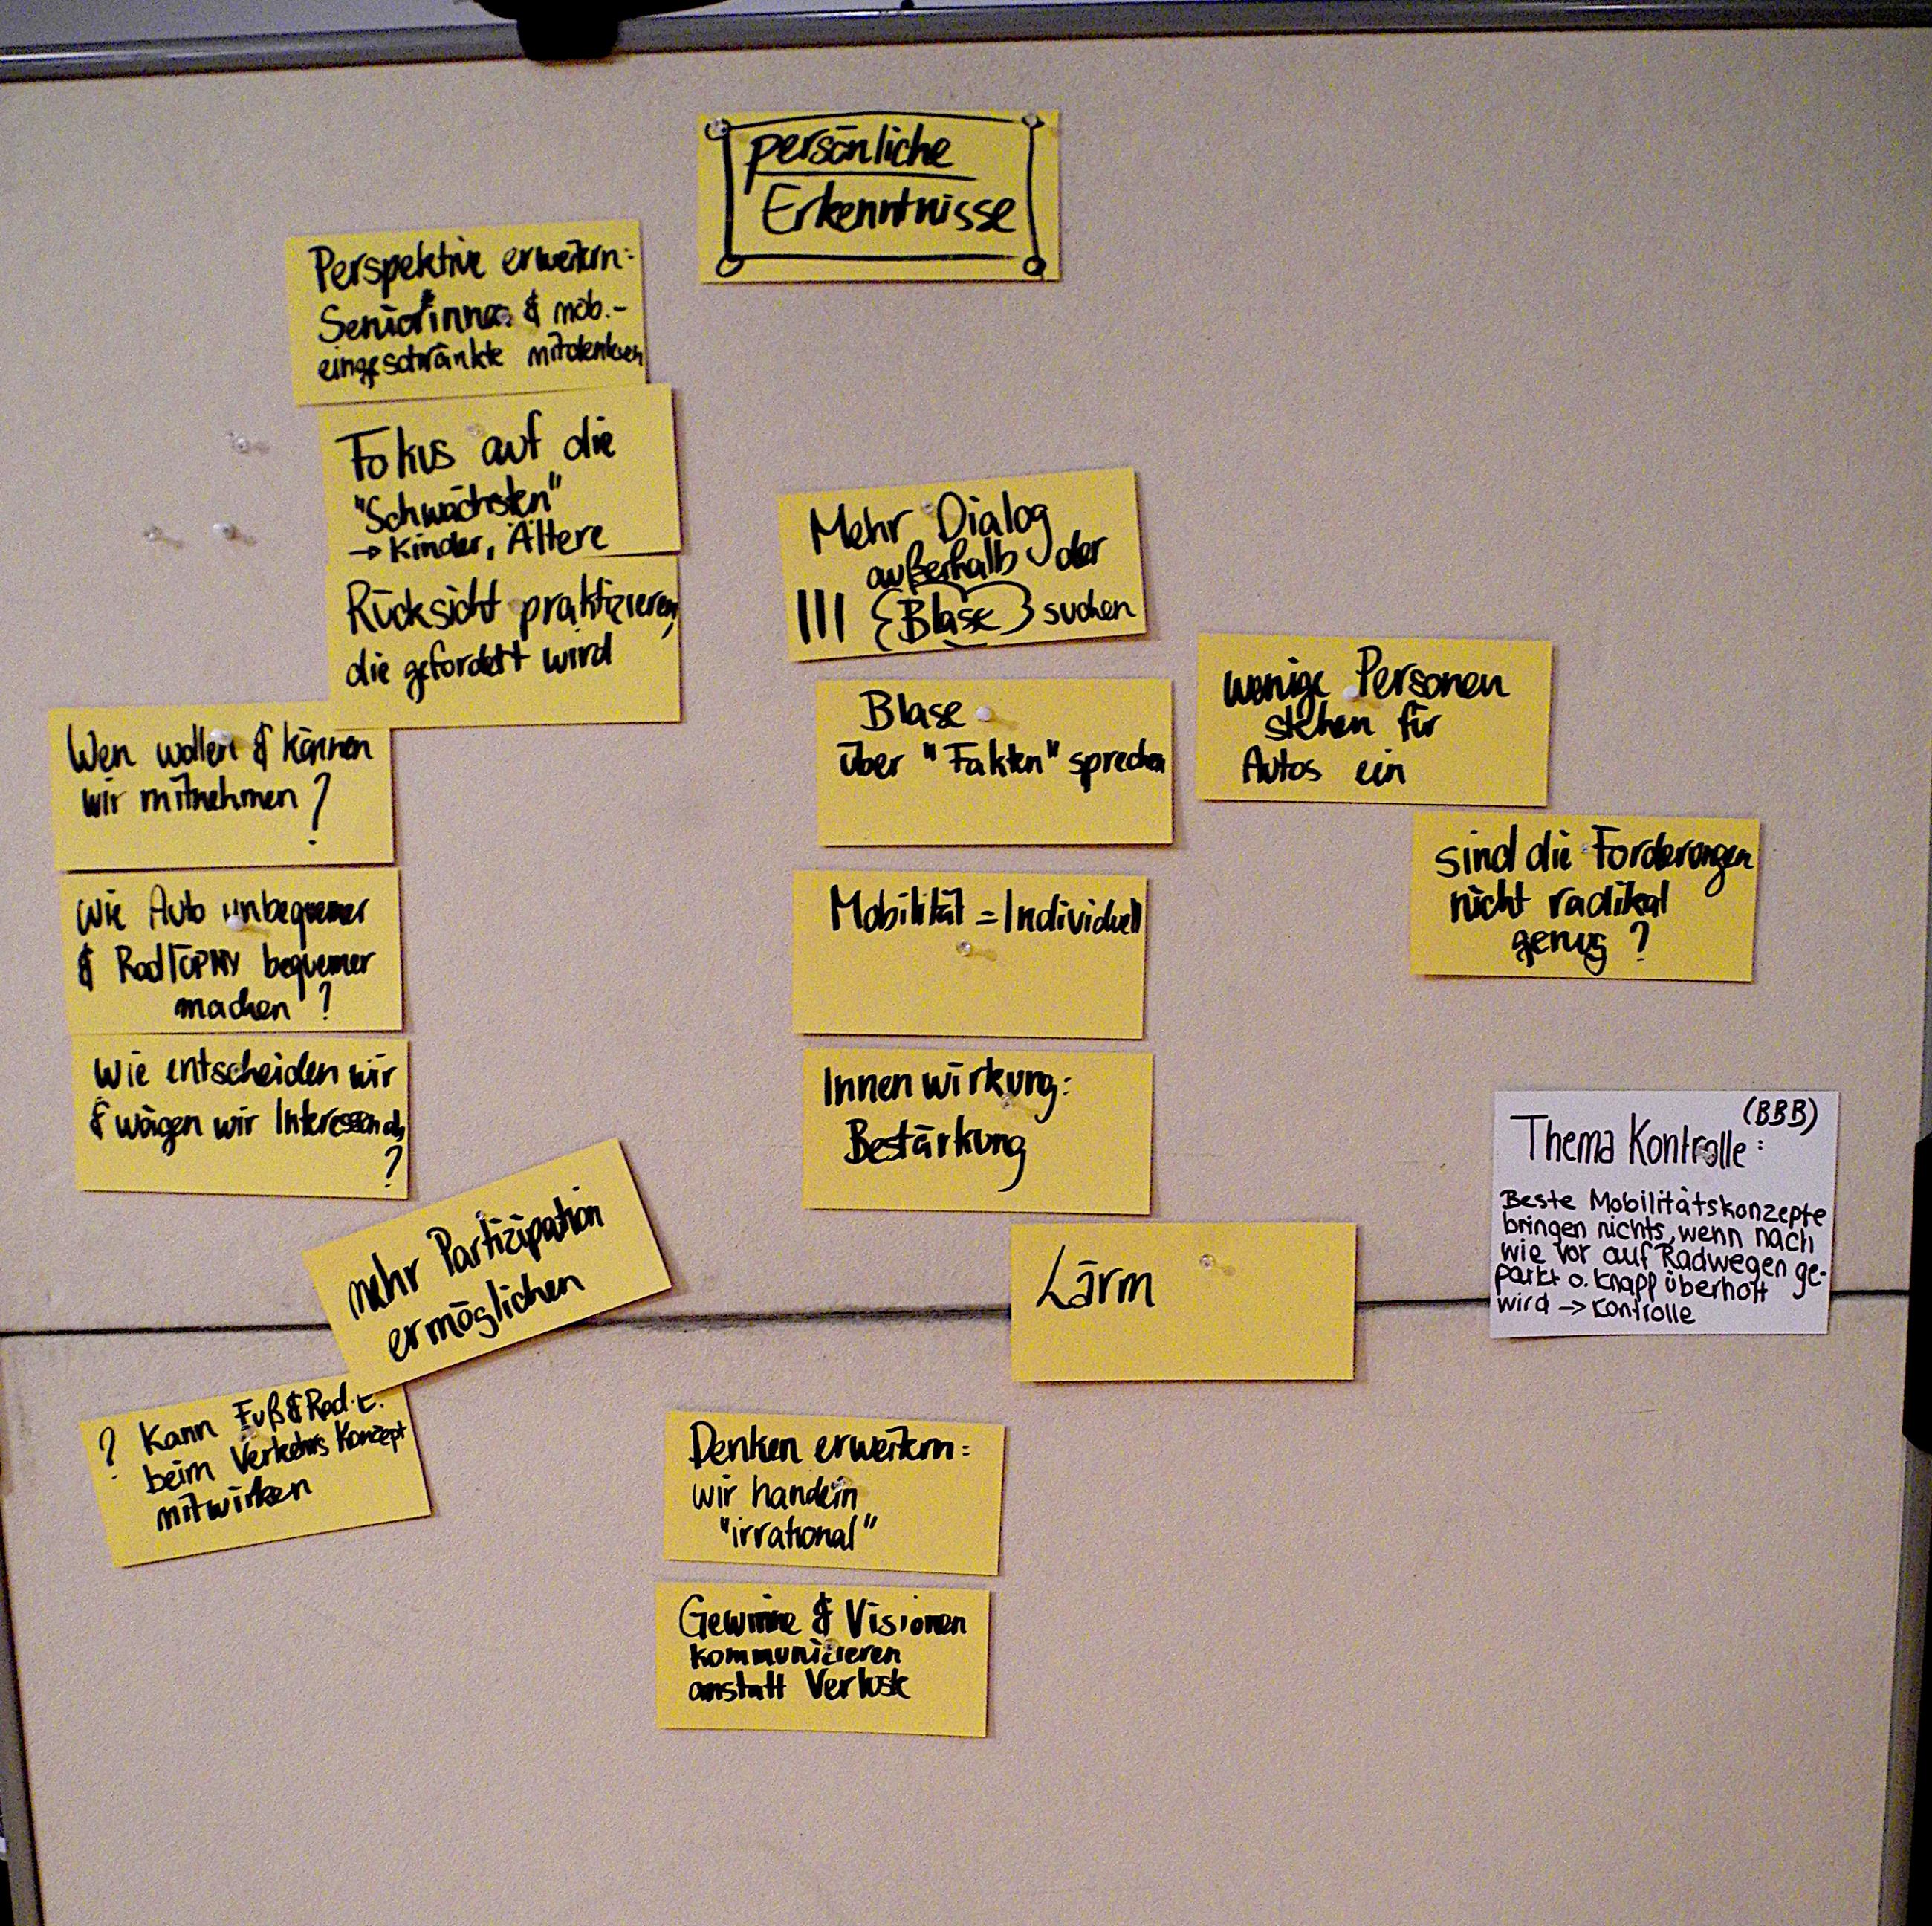 persönliche
Erkenntnisse
Perspektive erweitern:
Senior*innen & mob.-
eingeschränkte mitdenken
Fokus auf die
"Schwächsten"
→ Kinder, Ältere
Rücksicht praktizieren,
die gefordert wird
Wen wollen & können
wir mitnehmen?
Wie Auto unbequemer
& Rad/ÖPNV bequemer
machen?
Wie entscheiden wir
& wägen wir Interessen ab
?
mehr Partizipation
ermöglichen
? Kann Fuß&Rad.E.
beim Verkehrs Konzept
mitwirken
Mehr Dialog
außerhalb der
||| {Blase} suchen
Blase
über "Fakten" sprechen
Mobilität = Individuell
Innenwirkung:
Bestärkung
Lärm
Denken erweitern:
wir handeln
"irrational"
Gewinne & Visionen
kommunizieren
anstatt Verluste
wenige Personen
stehen für
Autos ein
sind die Forderungen
nicht radikal
genug?
(BBB)
Thema Kontrolle:
Beste Mobilitätskonzepte
bringen nichts, wenn nach
wie vor auf Radwegen ge-
parkt o. knapp überholt
wird → Kontrolle